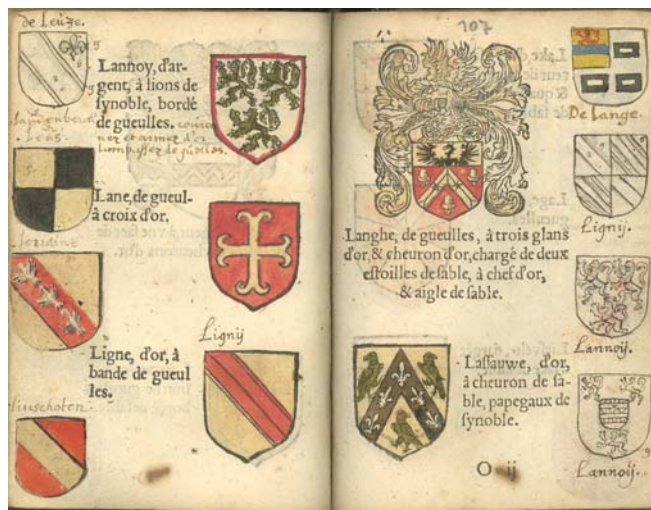 de Leuze.
Lannoy, d'ar-
gent, à lions de
synoble, bordé
de gueulles.
armez d'or
Lane, de gueul-
à croix d'or.
Lignij
Ligne, d'or, à
bande de gueul
les.
107
De Lange.
Langhe, de gueulles, à trois glans
d'or, & cheuron d'or, chargé de deux
estoilles de sable, à chef d'or,
& aigle de sable.
Lignij.
Lannoij.
Lassauwe, d'or,
à cheuron de sa-
ble, papegaux de
synoble.
O ij
Lannoij.